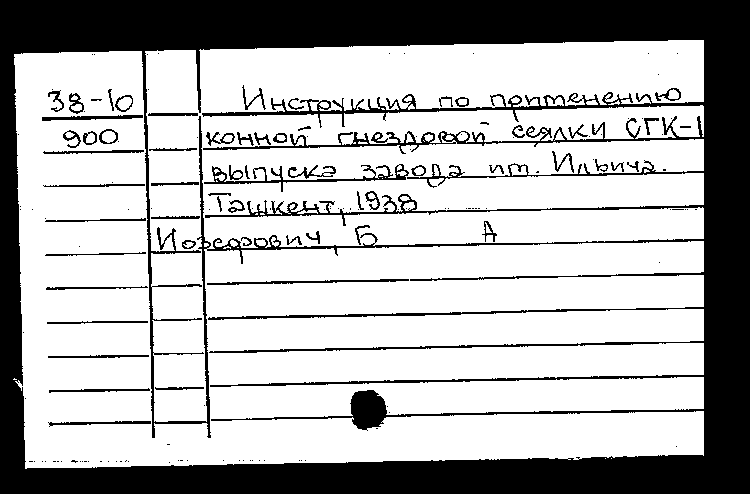 38-10 Инструкция по применению
900 конной гнездовой сеялки СГК-1
выпуска завода им. Ильича.
Ташкент, 1938
Иозефович, Б А